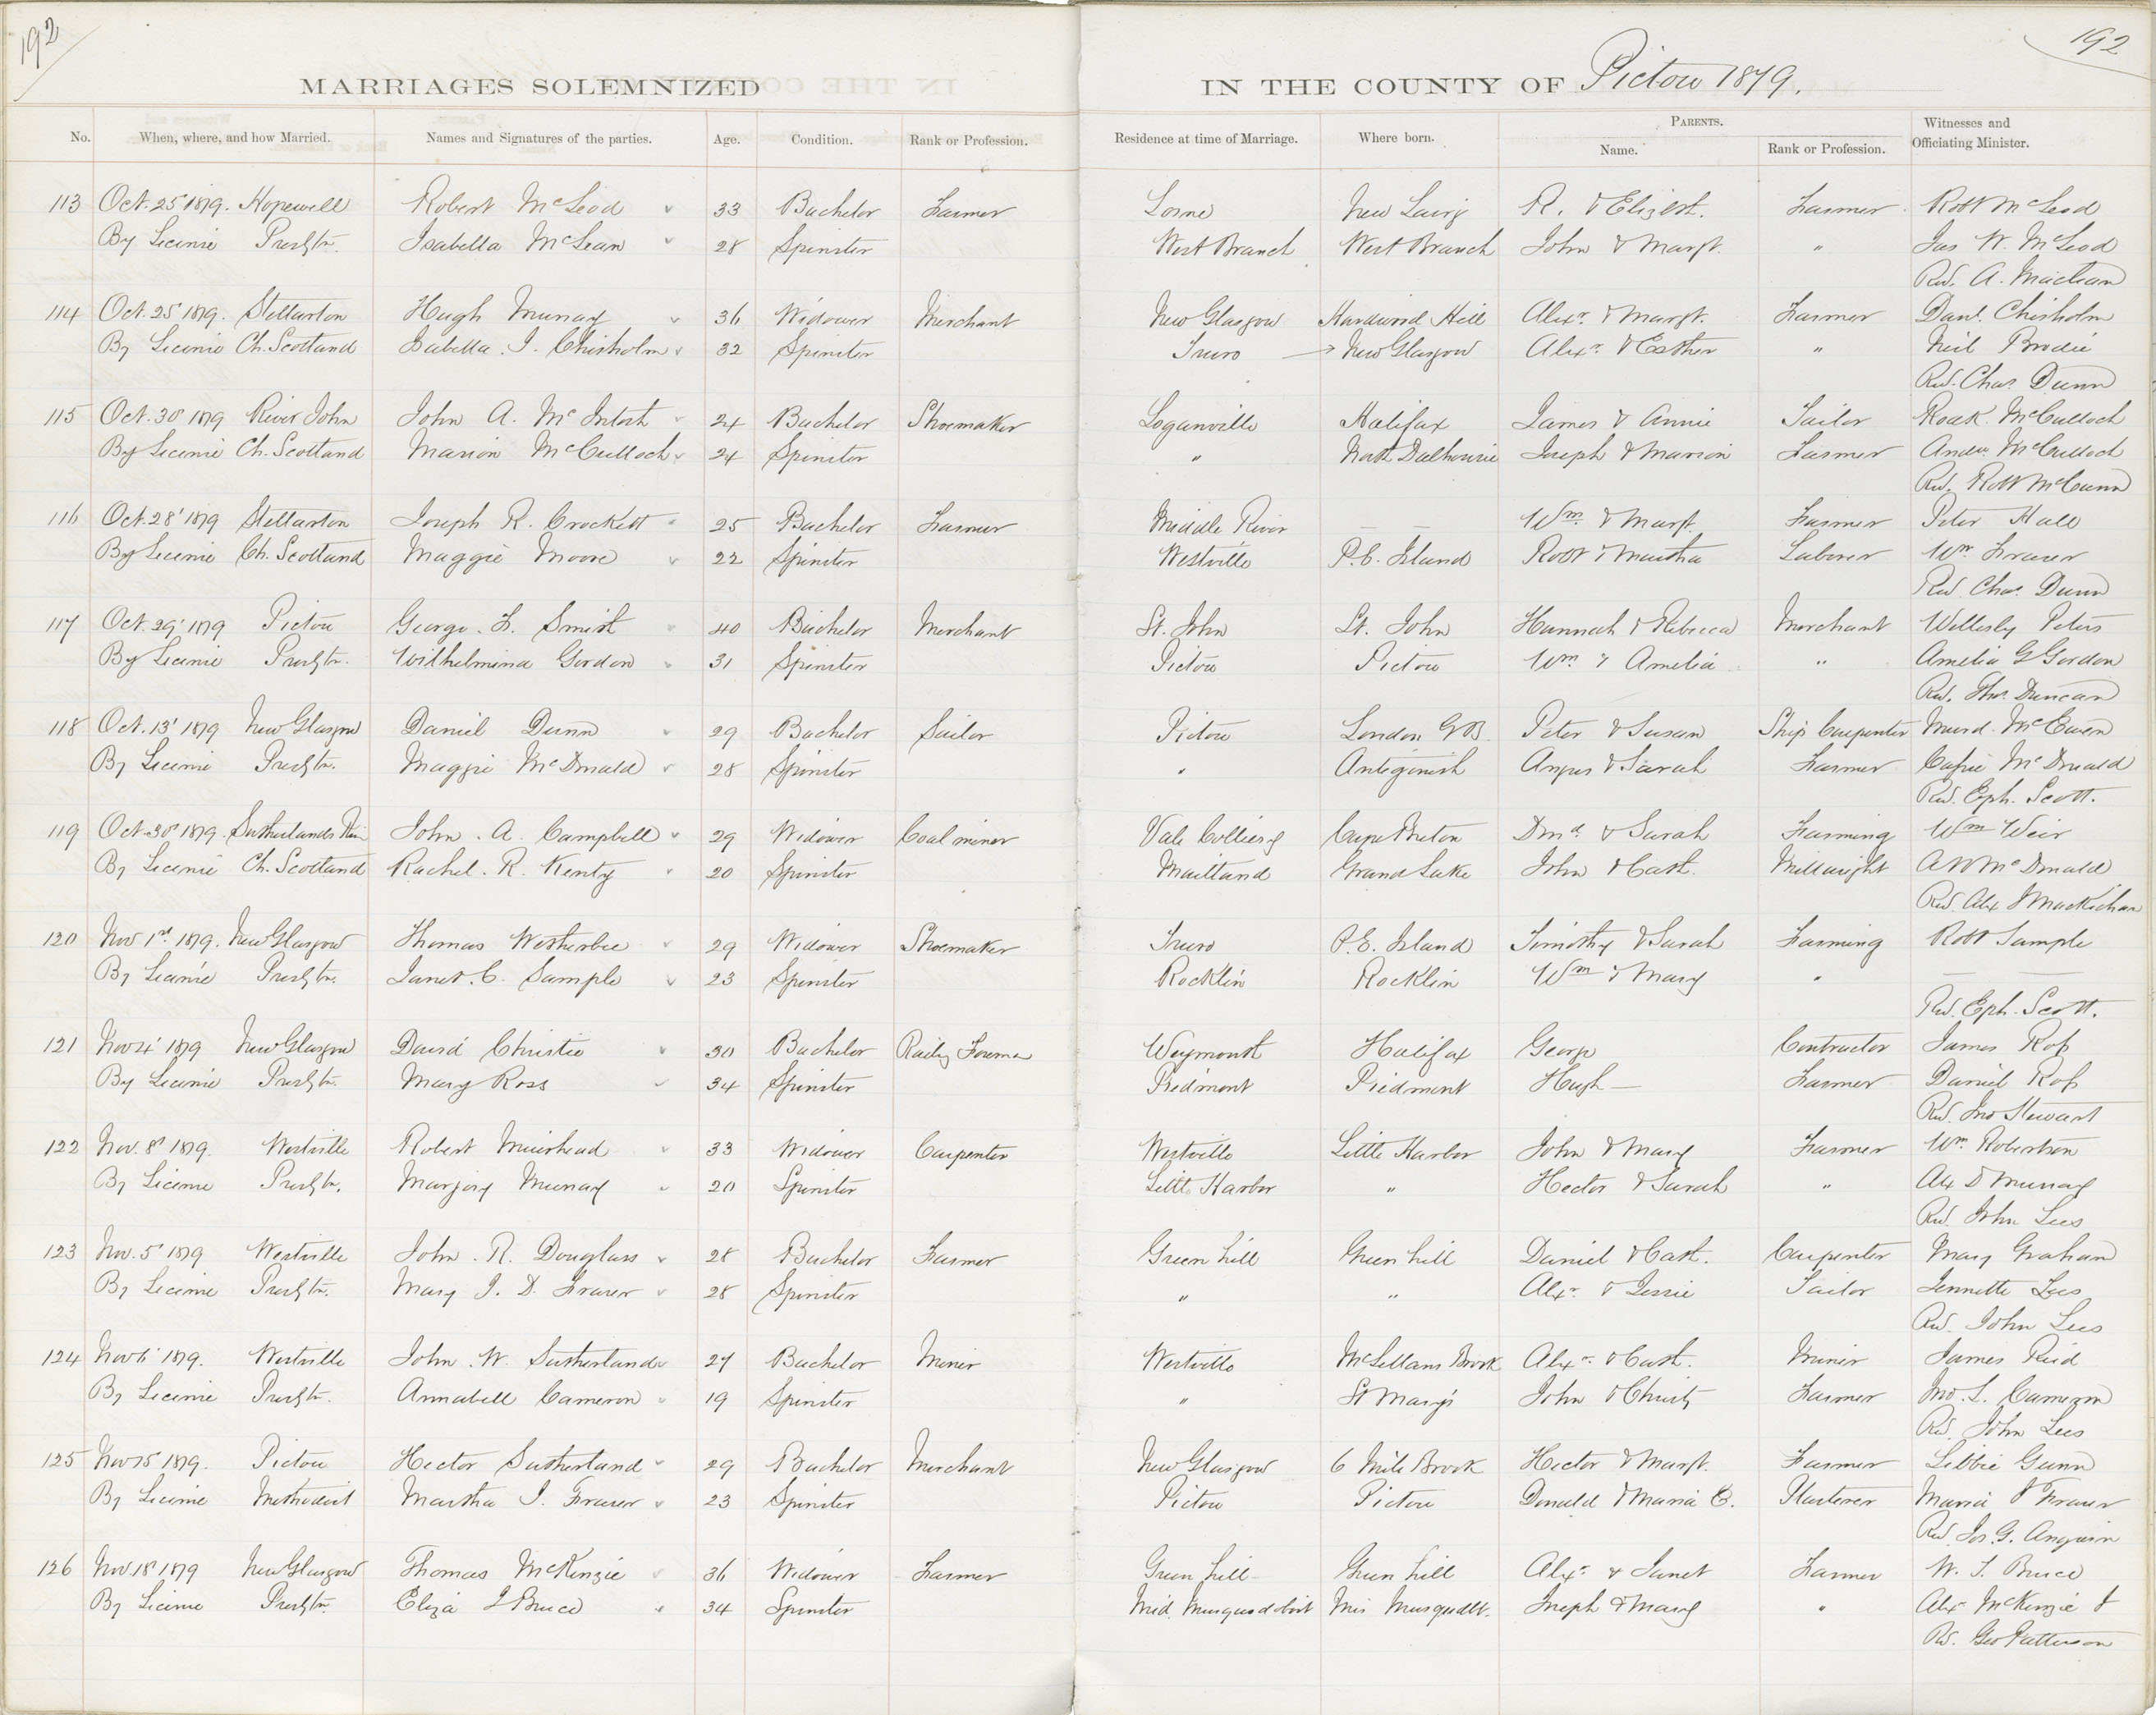 192
192
MARRIAGES SOLEMNIZED IN THE COUNTY OF Pictou 1879.
No. When, where, and how Married. Names and Signatures of the parties. Age. Condition. Rank or Profession. Residence at time of Marriage. Where born. PARENTS. Name. Rank or Profession. Witnesses and Officiating Minister.
113 Oct. 25' 1879. Hopewell Robert McLeod 33 Bachelor Farmer Lorne New Lairg R. & Elizbt. Farmer Robt McLeod
By License Presbtn. Isabella McLean 28 Spinster West Branch West Branch John & Margt. " Jas W. McLeod
Rev. A. Maclean
114 Oct. 25' 1879. Stellarton Hugh Murray 36 Widower Merchant New Glasgow Hardwood Hill Alexr. & Margt. Farmer Danl. Chisholm
By License Ch. Scotland Isabella J. Chisholm 32 Spinster Truro → New Glasgow Alexr. & Esther " Neil Brodie
Rev. Chas. Dunn
115 Oct. 30' 1879 River John John A. McIntosh 24 Bachelor Shoemaker Loganville Halifax James & Annie Tailor Roak. McCulloch
By License Ch. Scotland Marion McCulloch 24 Spinster " North Dalhousie Joseph & Marion Farmer Andw McCulloch
Rev. Robt McCunn
116 Oct. 28' 1879 Stellarton Joseph R. Crockett 25 Bachelor Farmer Middle River — — Wm. & Margt. Farmer Peter Hall
By License Ch. Scotland Maggie Moore 22 Spinster Westville P.E. Island Robt & Martha Laborer Wm. Fraser
Rev Chas. Dunn
117 Oct. 29' 1879 Pictou George. F. Smith 40 Bachelor Merchant St. John St. John Hannah & Rebecca Merchant Wellesly Peters
By License Presbtn. Wilhelmina Gordon 31 Spinster Pictou Pictou Wm. & Amelia " Amelia G Gordon
Rev. Thos. Duncan
118 Oct. 13' 1879 New Glasgow Daniel Dunn 29 Bachelor Sailor Pictou London G.B. Peter & Susan Ship Carpenter Murd. McEwen
By License Presbtn. Maggie McDonald 28 Spinster " Antigonish Angus & Sarah Farmer Cassie McDonald
Rev. Eph. Scott.
119 Oct. 30' 1879. Sutherlands Riv. John. A. Campbell 29 Widower Coal miner Vale Colliery Cape Breton Dond. & Sarah Farming Wm Weir
By License Ch. Scotland Rachel. R. Kenty 20 Spinster Maitland Grand Lake John & Cath. Millwright A W McDonald
Rev. Alex J MacKichan
120 Nov 1st. 1879. New Glasgow Thomas Wetherbee 29 Widower Shoemaker Truro P.E. Island Timothy & Sarah Farming Robt Sample
By License Presbtn. Janet. C. Sample 23 Spinster Rocklin Rocklin Wm & Mary " —
Rev. Eph. Scott.
121 Nov 4' 1879 New Glasgow David Christie 30 Bachelor Railwy Foreman Weymouth Halifax George Contractor James Ross
By License Presbtn. Mary Ross 34 Spinster Piedmont Piedmont Hugh — Farmer Daniel Ross
Rev. Jno Stewart
122 Nov. 8' 1879. Westville Robert Muirhead 33 Widower Carpenter Westville Little Harbor John & Mary Farmer Wm. Robertson
By License Presbtn. Marjory Murray 20 Spinster Little Harbor " Hector & Sarah " Alx D Murray
Rev. John Lees
123 Nov. 5' 1879 Westville John. R. Douglass 28 Bachelor Farmer Green hill Green hill Daniel & Cath. Carpenter Mary Graham
By License Presbtn. Mary J. D. Fraser 28 Spinster " " Alexr. & Jessie Tailor Jennette Lees
Rev. John Lees
124 Nov 6' 1879. Westville John. W. Sutherland 27 Bachelor Miner Westville McLellans Brook Alexr. & Cath. Miner James Reid
By License Presbtn. Annabell Cameron 19 Spinster " St Mary's John & Christy Farmer Jno. L. Cameron
Rev. John Lees
125 Nov 15 1879. Pictou Hector Sutherland 29 Bachelor Merchant New Glasgow 6 Mile Brook Hector & Margt. Farmer Libbie Gunn
By License Methodist Martha J. Fraser 23 Spinster Pictou Pictou Donald & Maria E. Plasterer Maria J Fraser
Rev. Jos. G. Angwin
126 Nov. 18' 1879 New Glasgow Thomas McKenzie 36 Widower Farmer Green hill Green hill Alexr. & Janet Farmer W. T. Bruce
By License Presbtn. Eliza J Bruce 34 Spinster Mid. Musquodoboit Mid Musquodbt. Joseph & Mary " Alex McKenzie J
Rev. Geo Patterson